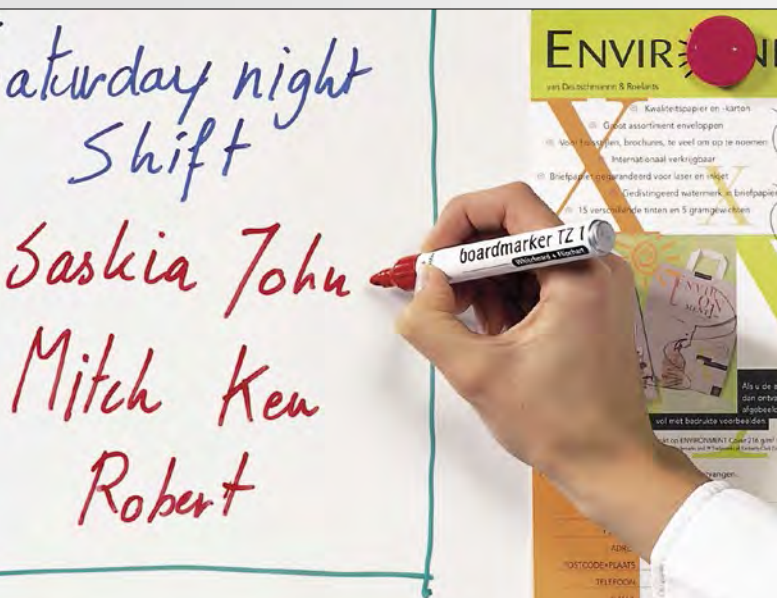 aturday night
Shift
Saskia John
Mitch Ken
Robert
boardmarker TZ 1
Whiteboard + Flipchart
ENVIR
van Deutschmann & Roelants
Kwaliteitspapier en -karton
Groot assortiment enveloppen
brochures, te veel om op te noemen
Internationaal verkrijgbaar
Briefpapier gegarandeerd voor laser en inkjet
Gedistingeerd watermerk in briefpapier
15 verschillende tinten en 5 gramgewichten
ENVIR
ON
MENT
Als u de
dan ontva
afgebeeld
vol met bedrukte voorbeelden
op ENVIRONMENT Cover 216 g/m²
ADRE
POSTCODE+PLAATS
TELEFOON